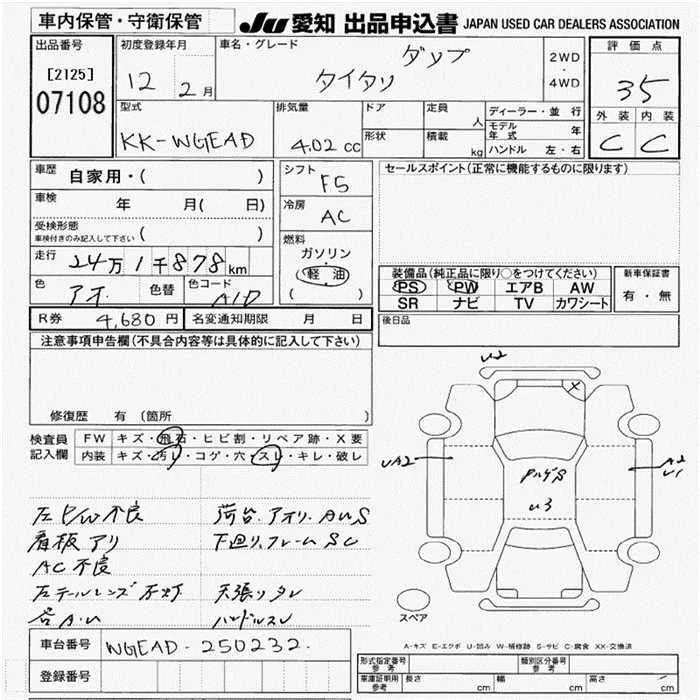 車内保管・守衛保管
JU 愛知 出品申込書 JAPAN USED CAR DEALERS ASSOCIATION
出品番号
[2125]
07108
初度登録年月
12 2月
車名・グレード
ダンプ
タイタン
2WD
・
4WD
評価点
3.5
外装 内装
C C
型式
KK-WGEAD
排気量
4.02 cc
ドア
形状
定員
人
積載
kg
ディーラー・並 行
モデル年式 年
ハンドル 左・右
車歴 自家用・( )
車検 年 月( 日)
受検形態
車検付きのみ記入して下さい ( )
走行 24万1千878km
色 アオ 色替 色コード A1D
R券 4,680円 名変通知期限 月 日
シフト
F5
冷房
AC
燃料
ガソリン
軽 油
( )
セールスポイント(正常に機能するものに限ります)
装備品(純正品に限り○をつけてください)
PS PW エアB AW
SR ナビ TV カワシート
新車保証書
有・無
後日品
注意事項申告欄(不具合内容等は具体的に記入して下さい)
修復歴 有(箇所 )
検査員
記入欄
FW キズ・飛石・ヒビ割・リペア跡・X要
内装 キズ・汚レ・コゲ・穴・スレ・キレ・破レ
左P/W不良
看板アリ
AC不良
左テールレンズ不灯
各A.U
荷台.アオリ.AUS
下廻り.フレームSC
天張りタレ
ハンドルスレ
U2
X
UA2
A2
U1
U3
スペア
A-キズ E-エクボ U-凹み W-補修跡 S-サビ C-腐食 XX-交換済
車台番号 WGEAD-250232
登録番号
形式指定番号 参考
類別区分番号 参考
車庫証明用 参考
長さ cm 幅 cm 高さ cm